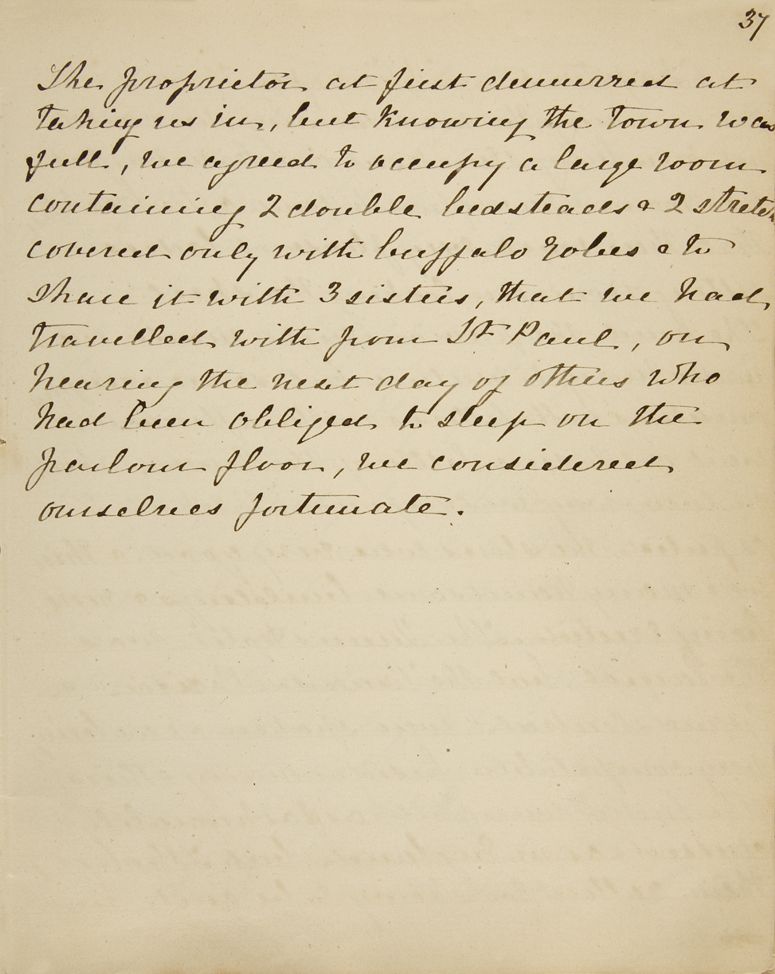 37
The proprietor at first demurred at
taking us in, but knowing the town was
full, we agreed to occupy a large room
containing 2 double bedsteads & 2 stretch
covered only with buffalo robes & to
share it with 3 sisters, that we had
travelled with from St Paul, on
hearing the next day of others who
had been obliged to sleep on the
parlour floor, we considered
ourselves fortunate.